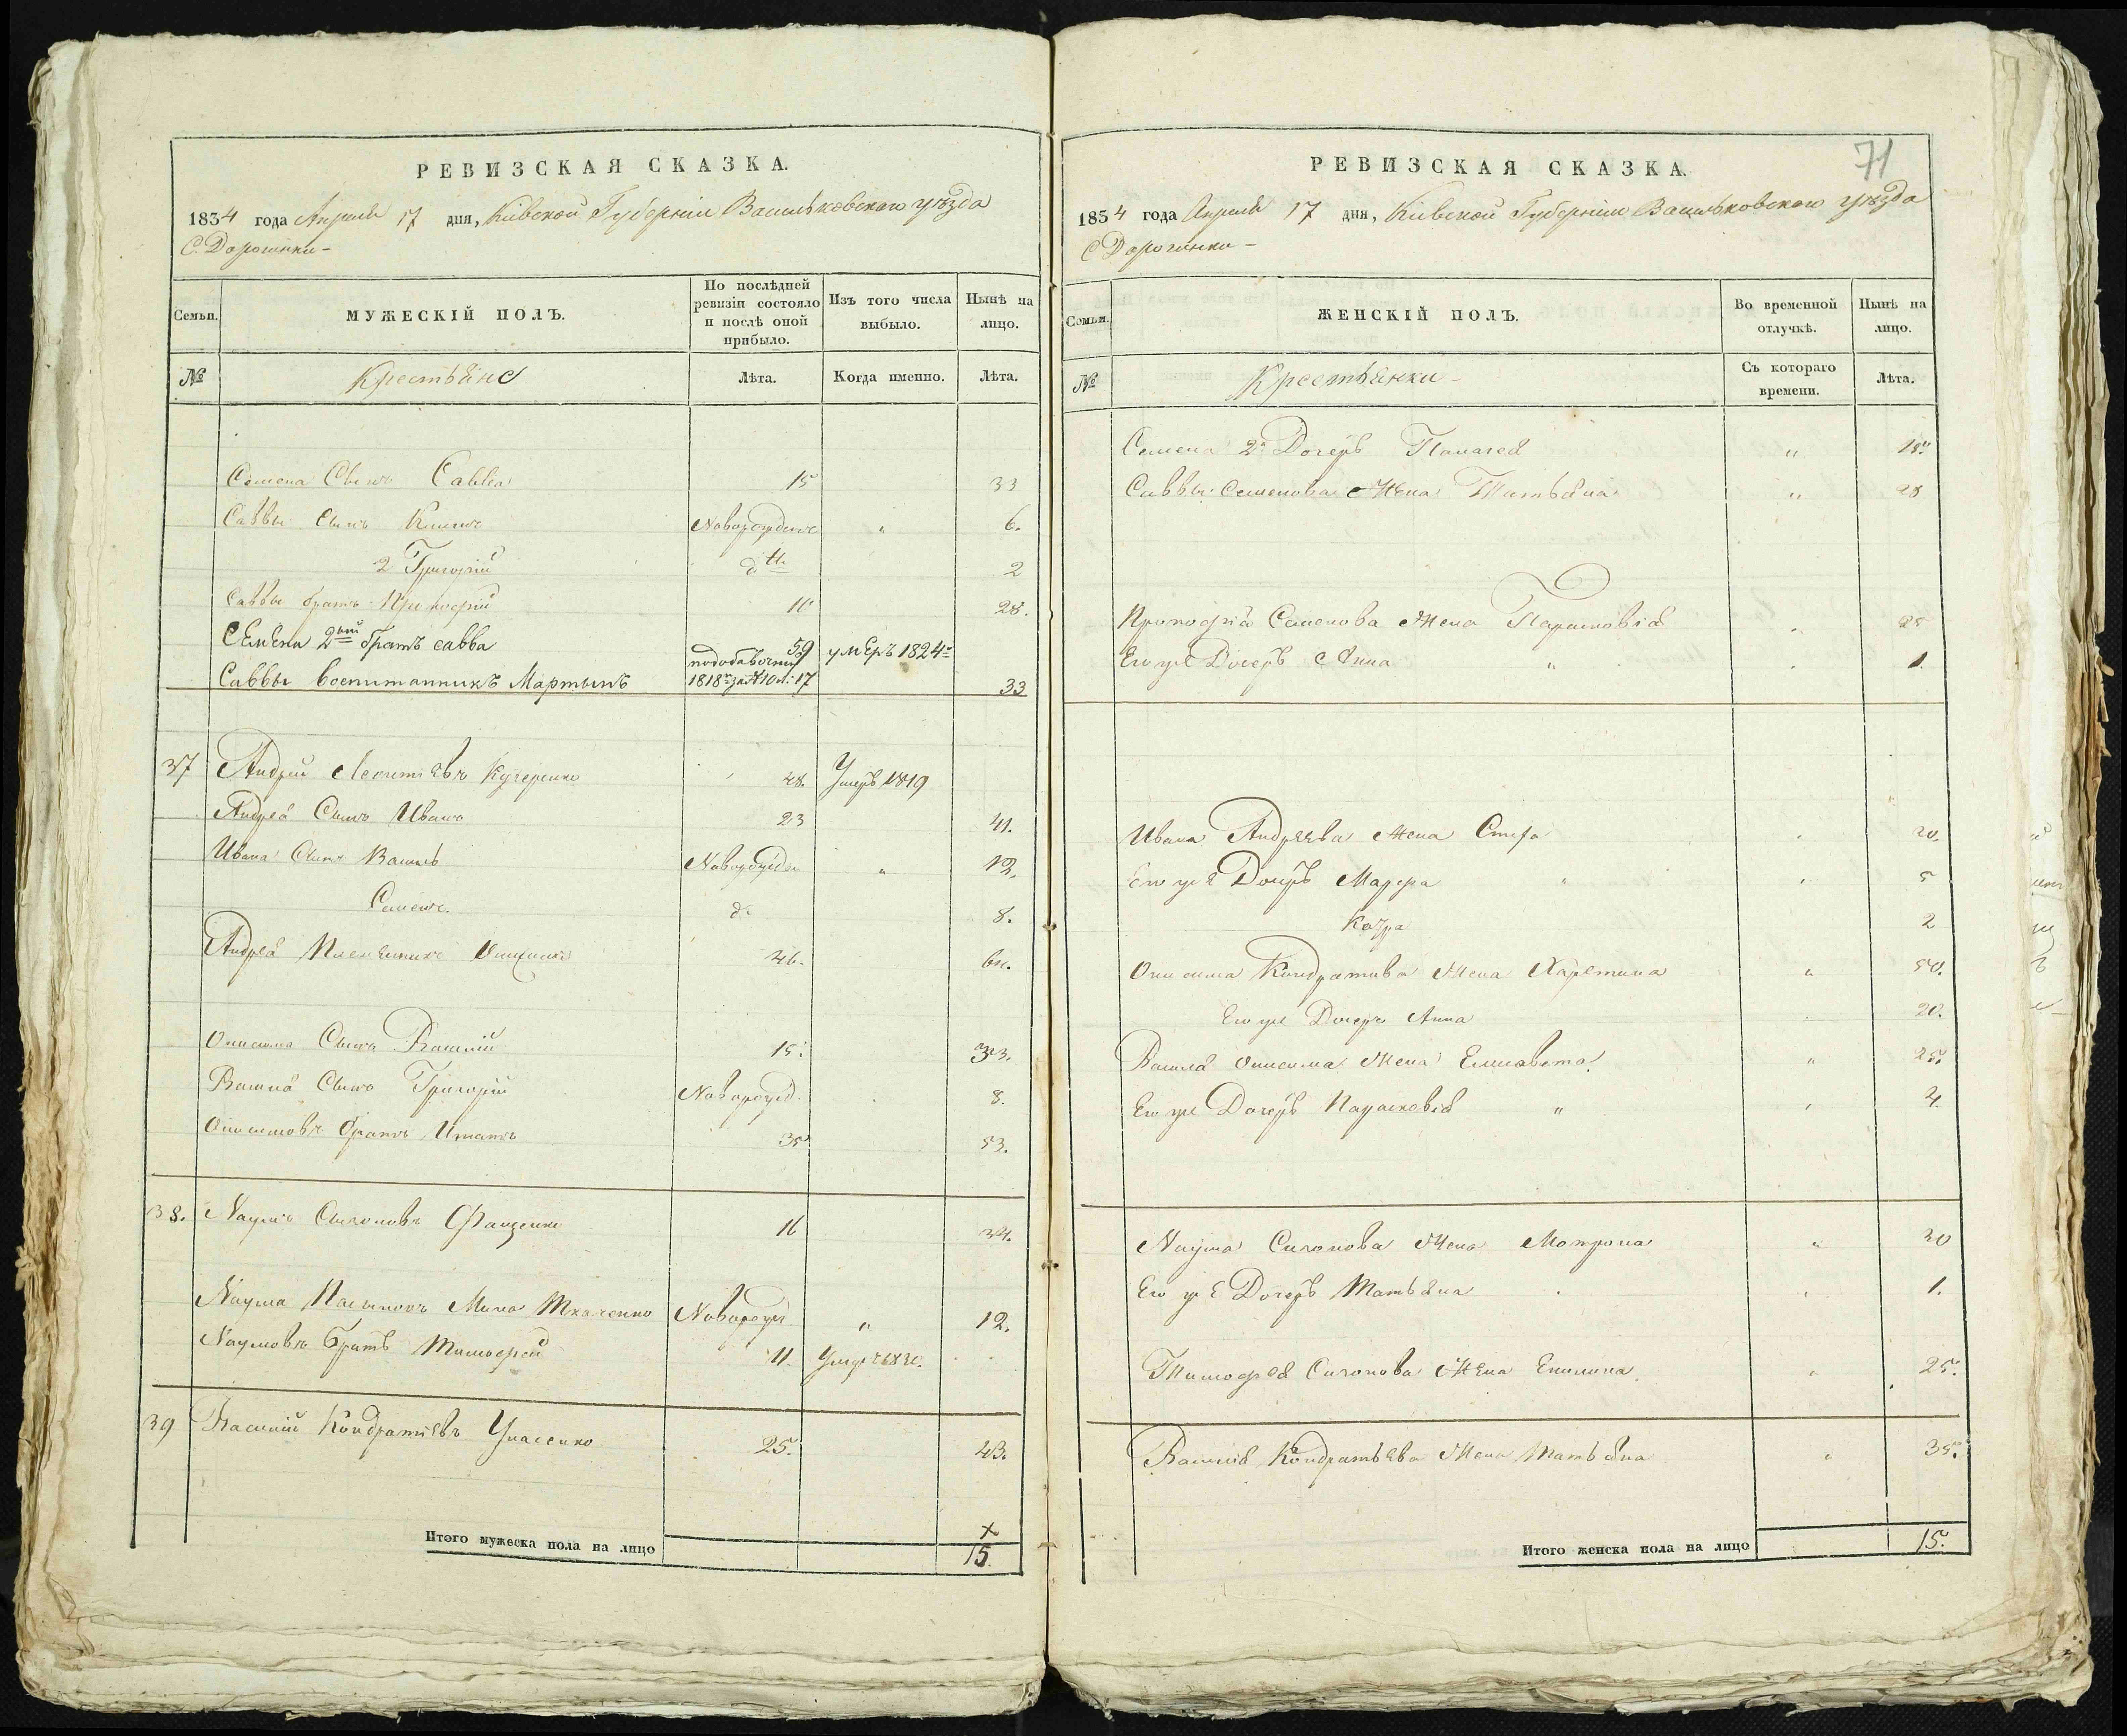 РЕВИЗСКАЯ СКАЗКА.
1834 года Апреля 17 дня, Кіевской Губерніи Васильковского уѣзда
С. Дорогинки -
Семьи. МУЖЕСКІЙ ПОЛЪ. По послѣдней ревизіи состояло и послѣ оной прибыло. Изъ того числа выбыло. Нынѣ на лицо.
№ Крестьяне Лѣта. Когда именно. Лѣта.
Семена Сынъ Савва 15 33
Саввы Сынъ Климъ Новорожденъ " 6.
2 Григорій 2
Саввы братъ Прокофій 28.
Семена 2ый братъ савва 59 умеръ 1824
Саввы воспитанникъ Мартынъ 1818 17 33
37 Андрей Леонтіевъ Кучеренко 48. Умеръ 1819
Андрея Сынъ Иванъ 23 41.
Ивана Сынъ Василь Новорожден " 12.
Семенъ. д. 8.
Андрея Племянникъ Онисимъ 46. 64.
Онисима Сынъ Василій 15. 33.
Василія Сынъ Григорій Новорожд. 8.
Онисимовъ братъ Игнатъ 35 53.
38. Наумъ 16 34.
Наума Пасынокъ Мина Ткаченко Новорожд " 12.
Наумовъ братъ Тимофей 11.
39 Василій Кондратіевъ 25. 43.
Итого мужеска пола на лицо 15.
РЕВИЗСКАЯ СКАЗКА.
71
1834 года Апреля 17 дня, Кіевской Губерніи Васильковского уѣзда
С Дорогинки -
Семьи. ЖЕНСКІЙ ПОЛЪ. Во временной отлучкѣ. Нынѣ на лицо.
№ Крестьянки - Съ котораго времени. Лѣта.
Семена 2я Дочерь "
Саввы Семенова Жена Татьяна "
Прокофія Семенова Жена Парасковія 25
Его же Дочерь Анна " 1.
Ивана Андреева Жена
Его же Дочерь 5
2
Онисима Кондратива Жена Харетина " 50.
Его же Дочерь Анна 20.
Василія Онисима Жена Елисавета " 25.
Его же Дочерь Парасковія " 4.
Наума Жена Мотрона " 30
Его же Дочерь Татьяна 1.
Тимофея Жена 25.
Василія Кондратьева Жена Татьяна " 35.
Итого женска пола на лицо 15.